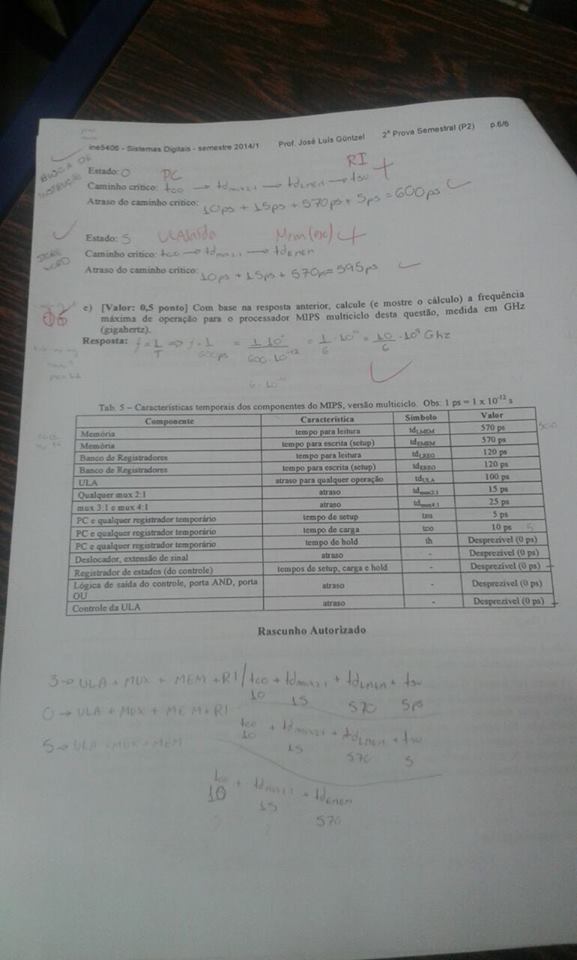 ine5406 - Sistemas Digitais - semestre 2014/1 Prof. José Luís Güntzel 2ª Prova Semestral (P2) p.6/6
BUSCA DE INSTRUÇÃO
Estado: 0 PC RI
Caminho crítico: tco → tdmux2:1 → tdLMEM → tsu
Atraso do caminho crítico: 10ps + 15ps + 570ps + 5ps = 600ps
Estado: 5 ULASaída Mem(esc)
Caminho crítico: tco → tdmux2:1 → tdEMEM
Atraso do caminho crítico: 10ps + 15ps + 570ps = 595ps
e) [Valor: 0,5 ponto] Com base na resposta anterior, calcule (e mostre o cálculo) a frequência
máxima de operação para o processador MIPS multiciclo desta questão, medida em GHz
(gigahertz).
Resposta: f = 1/T ⇒ f = 1/600ps = 1·10⁰/600·10⁻¹² = 1/6 · 10¹⁰ = 10/6 · 10⁹ Ghz
Tab. 5 – Características temporais dos componentes do MIPS, versão multiciclo. Obs: 1 ps = 1 x 10⁻¹² s
Componente Característica Símbolo Valor
Memória tempo para leitura tdLMEM 570 ps
Memória tempo para escrita (setup) tdEMEM 570 ps
Banco de Registradores tempo para leitura tdLREG 120 ps
Banco de Registradores tempo para escrita (setup) tdEREG 120 ps
ULA atraso para qualquer operação tdULA 100 ps
Qualquer mux 2:1 atraso tdmux2:1 15 ps
mux 3:1 e mux 4:1 atraso tdmux4:1 25 ps
PC e qualquer registrador temporário tempo de setup tsu 5 ps
PC e qualquer registrador temporário tempo de carga tco 10 ps
PC e qualquer registrador temporário tempo de hold th Desprezível (0 ps)
Deslocador, extensão de sinal atraso - Desprezível (0 ps)
Registrador de estados (do controle) tempos de setup, carga e hold - Desprezível (0 ps)
Lógica de saída do controle, porta AND, porta
OU atraso - Desprezível (0 ps)
Controle da ULA atraso - Desprezível (0 ps)
Rascunho Autorizado
3 → ULA + MUX + MEM + RI / tco + tdmux2:1 + tdLMEM + tsu
10 15 570 5ps
0 → ULA + MUX + MEM + RI
tco + tdmux2:1 + tdLMEM + tsu
10 15 570 5
5 → ULA + MUX + MEM
tco + tdmux2:1 + tdEMEM
10 15 570